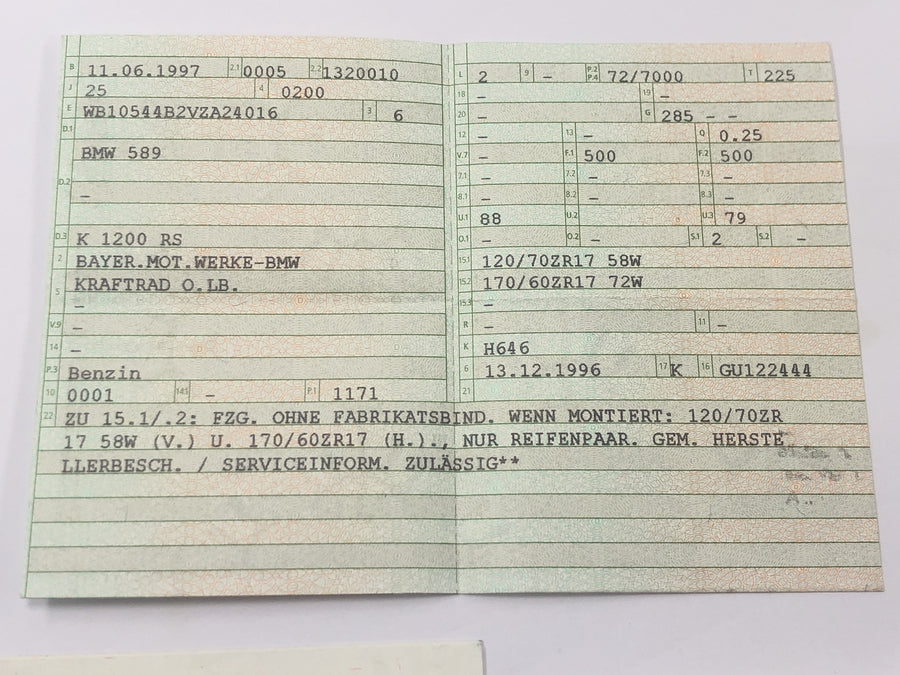 B 11.06.1997 2.1 0005 2.2 1320010
J 25 4 0200
E WB10544B2VZA24016 3 6
D.1
BMW 589
D.2
–
D.3 K 1200 RS
2 BAYER.MOT.WERKE-BMW
5 KRAFTRAD O.LB.
–
V.9 –
14 –
P.3 Benzin
10 0001 14.1 – P.1 1171
L 2 9 – P.2 P.4 72/7000 T 225
18 – 19 –
20 – G 285 – –
12 – 13 – Q 0.25
V.7 – F.1 500 F.2 500
7.1 – 7.2 – 7.3 –
8.1 – 8.2 – 8.3 –
U.1 88 U.2 U.3 79
O.1 – O.2 – S.1 2 S.2 –
15.1 120/70ZR17 58W
15.2 170/60ZR17 72W
15.3 –
R – 11 –
K H646
6 13.12.1996 17 K 16 GU122444
21
22 ZU 15.1/.2: FZG. OHNE FABRIKATSBIND. WENN MONTIERT: 120/70ZR
17 58W (V.) U. 170/60ZR17 (H.)., NUR REIFENPAAR. GEM. HERSTE
LLERBESCH. / SERVICEINFORM. ZULÄSSIG**